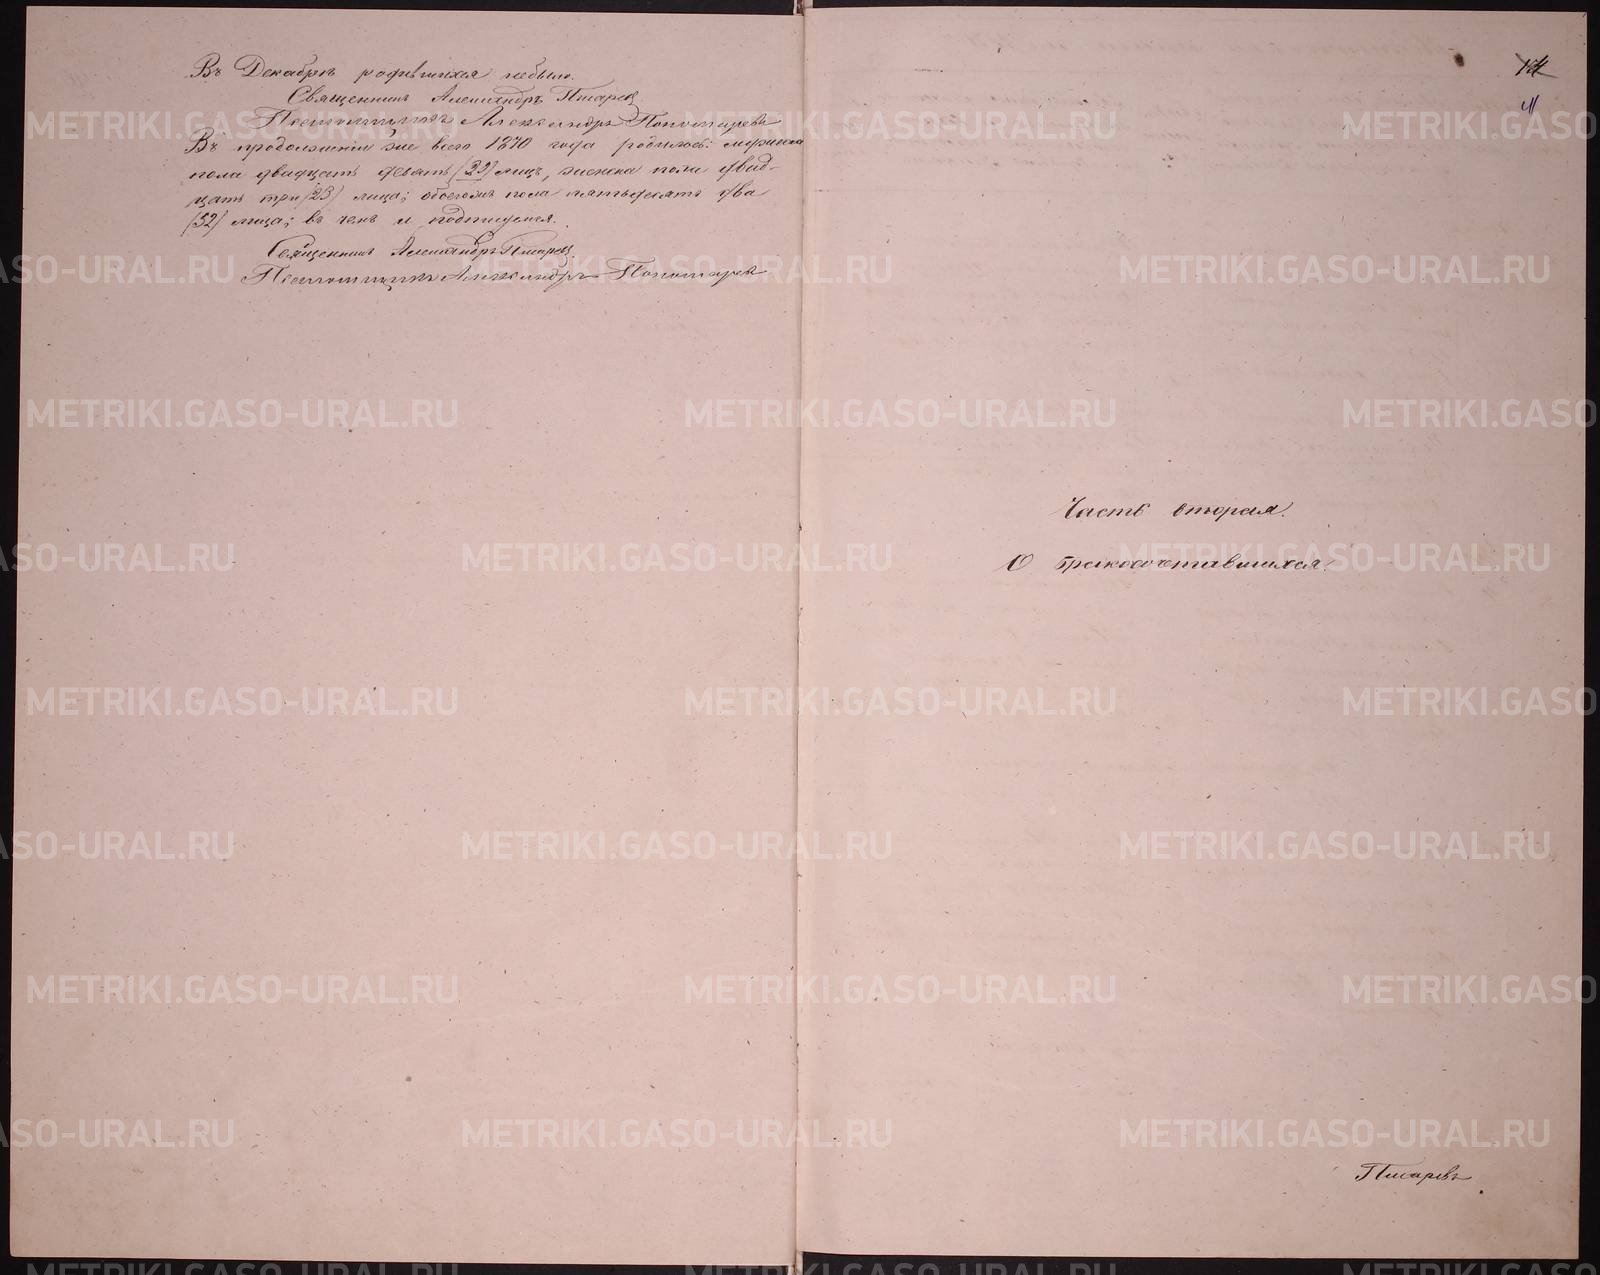 Въ Декабрѣ родившихся небыло.
Священникъ Александръ Писаревъ
Псаломщикъ Александръ Пономаревъ
Въ продолженіи же всего 1870 года родилось: мужеска
пола двадцать девять (29) лицъ, женска пола двад-
цать три (23) лица; обоегожъ пола пятьдесятъ два
(52) лица; въ чемъ и подпишемся.
Священникъ Александръ Писаревъ
Псаломщикъ Александръ Пономаревъ
14
41
Часть вторая.
О бракосочетавшихся.
Писаревъ
METRIKI.GASO-URAL.RU